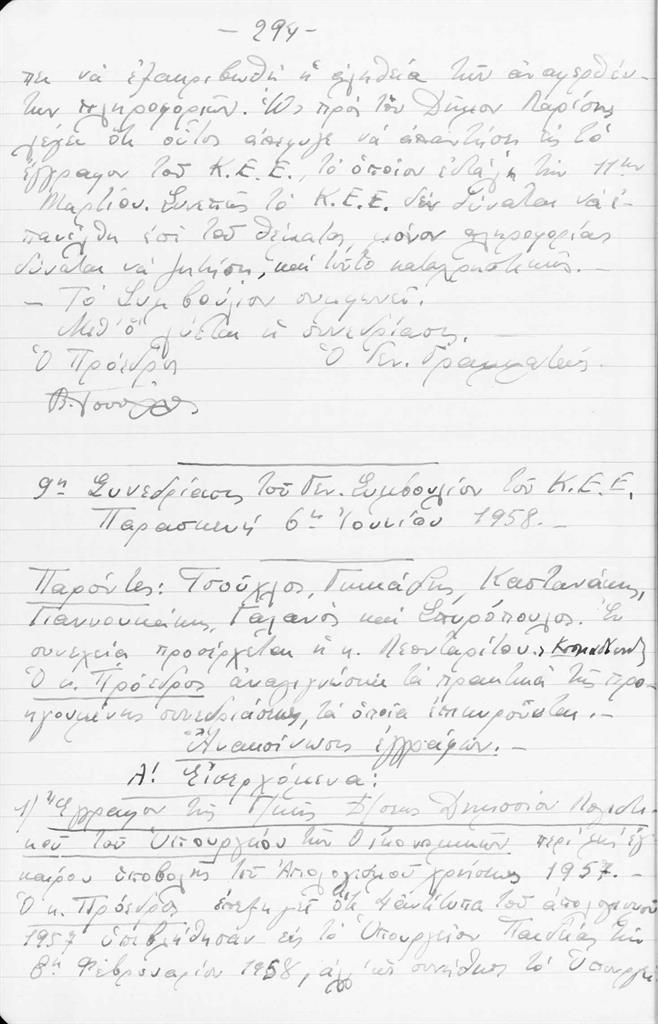 - 294 -
πει νὰ ἐξακριβωθῇ ἡ ἀλήθεια τῶν ἀναφερθέν-
των πληροφοριῶν. Ὡς πρὸς τὸν Δῆμον Λαρίσης
λέγει ὅτι οὗτος ἀπέφυγε νὰ ἀπαντήσῃ εἰς τὸ
ἔγγραφον τοῦ Κ.Ε.Ε., τὸ ὁποῖον ἐστάλη τὴν 11ην
Μαρτίου. Συνεπῶς τὸ Κ.Ε.Ε. δὲν δύναται νὰ ἐ-
πανέλθῃ ἐπὶ τοῦ θέματος, μόνον πληροφορίας
δύναται νὰ ζητήσῃ, καὶ τοῦτο καταχρηστικῶς. -
- Τὸ Συμβούλιον συμφωνεῖ.
Μεθ' ὃ λύεται ἡ συνεδρίασις. -
Ὁ Πρόεδρος Ὁ Γεν. Γραμματεύς.
9η Συνεδρίασις τοῦ Γεν. Συμβουλίου τοῦ Κ.Ε.Ε.
Παρασκευή 6η Ἰουνίου 1958. -
Παρόντες: Τσοῦχλος, Γκικάδης, Καστανάκης,
Γιαννουκάκης, Γαλανὸς καὶ Σπυρόπουλος. Ἐν
συνεχείᾳ προσέρχεται ἡ κ. Λεονταρίτου.
Ὁ κ. Πρόεδρος ἀναγιγνώσκει τὰ πρακτικὰ τῆς προ-
ηγουμένης συνεδριάσεως, τὰ ὁποῖα ἐπικυροῦνται. -
Ἀνακοίνωσις ἐγγράφων. -
Α! Εἰσερχόμενα:
1) Ἔγγραφον τῆς Γ/κῆς Δ/σεως Δημοσίου Λογιστι-
κοῦ τοῦ Ὑπουργείου τῶν Οἰκονομικῶν περὶ τῆς ἐγ-
καίρου ὑποβολῆς τοῦ Ἀπολογισμοῦ χρήσεως 1957. -
Ὁ κ. Πρόεδρος ἐπεξηγεῖ ὅτι 4 ἀντίτυπα τοῦ ἀπολογισμοῦ
1957 ὑπεβλήθησαν εἰς τὸ Ὑπουργεῖον Παιδείας τὴν
8ην Φεβρουαρίου 1958, ἀλλ' ὡς συνήθως τὸ Ὑπουργεῖ-